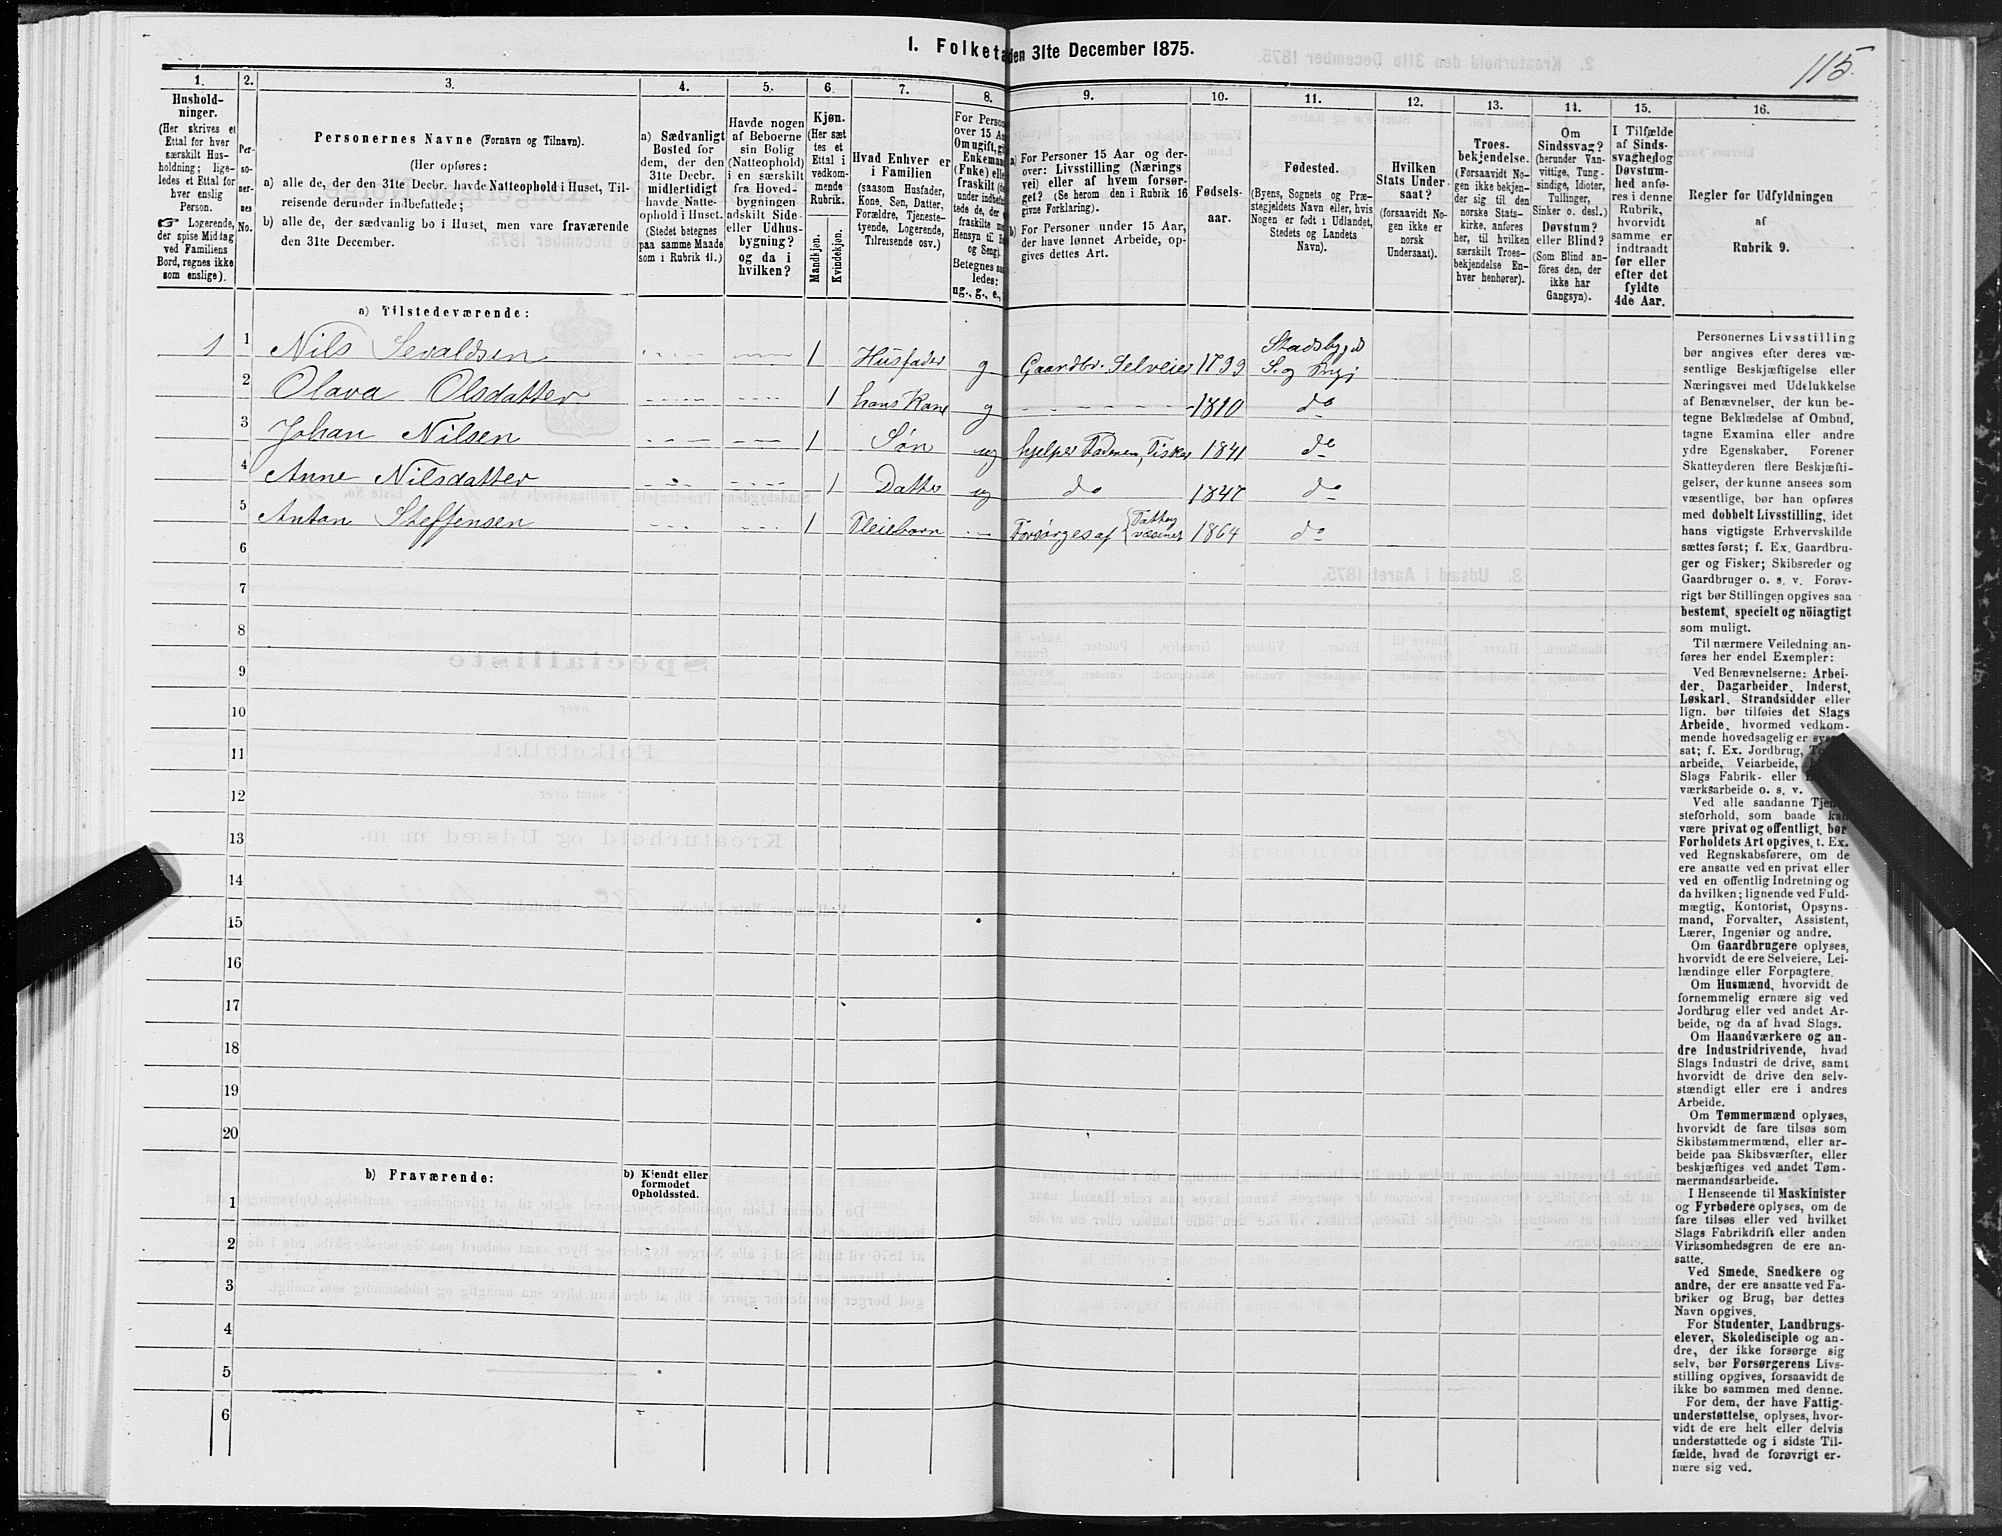 115.
1. Folketa den 31te December 1875.
1.
Hushold-
ninger.
(Her skrives et
Ettal for hver
særskilt Hus-
holdning; lige-
ledes et Ettal for
hver enslig
Person.
☞ Logerende,
der spise Middag
ved Familiens
Bord, regnes ikke
som enslige).
2.
Per-
so-
ner-
nes
No.
3.
Personernes Navne (Fornavn og Tilnavn).
(Her opføres:
a) alle de, der den 31te Decbr. havde Natteophold i Huset, Til-
reisende derunder indbefattede;
b) alle de, der sædvanlig bo i Huset, men vare fraværende
den 31te December.
4.
a) Sædvanligt
Bosted for
dem, der den
31te Decbr.
midlertidigt
havde Natte-
ophold i Huset.
(Stedet betegnes
paa samme Maade
som i Rubrik 11.)
5.
Havde nogen
af Beboerne
sin Bolig
(Natteophold)
i en særskilt
fra Hoved-
bygningen
adskilt Side-
eller Udhus-
bygning?
og da i
hvilken?
6.
Kjøn.
(Her sæt
tes et
Ettal i
vedkom-
mende
Rubrik.
Mandkjøn.
Kvindekjøn.
7.
Hvad Enhver er
i Familien
(saasom Husfader,
Kone, Søn, Datter,
Forældre, Tjeneste-
tyende, Logerende,
Tilreisende osv.)
8.
For Perso
over 15 Aa
Om ugift, gi
Enkema
(Fnke) elle
fraskilt (de
under indbef
tede de, der
fraskilte m
Hensyn til B
og Seng).
Betegnes saa
ledes:
ug., g., e.,
9.
a) For Personer 15 Aar og der-
over: Livsstilling (Nærings
vei) eller af hvem forsør-
get? (Se herom den i Rubrik 16
givne Forklaring).
b) For Personer under 15 Aar,
der have lønnet Arbeide, op-
gives dettes Art.
10.
Fødsels-
aar.
11.
Fødested.
(Byens, Sognets og Præ-
stegjeldets Navn eller, hvis
Nogen er født i Udlandet,
Stedets og Landets
Navn).
12.
Hvilken
Stats Under-
saat?
(forsaavidt No-
gen ikke er
norsk
Undersaat).
13.
Troes-
bekjendelse.
(Forsaavidt No-
gen ikke bekjen-
der sig til den
norske Stats-
kirke, anføres
her, til hvilken
særskilt Troes-
bekjendelse En-
hver henhører).
14.
Om
Sindssvag?
(herunder Van-
vittige, Tung-
sindige, Idioter,
Tullinger,
Sinker o. desl.)
Døvstum?
eller Blind?
(Som Blind an-
føres den, der
ikke har
Gangsyn).
15.
I Tilfælde
af Sinds-
svaghed og
Døvstum-
hed anfø-
res i denne
Rubrik,
hvorvidt
samme er
indtraadt
før eller
efter det
fyldte
4de Aar.
16.
Regler for Udfyldningen
af
Rubrik 9.
a) Tilstedeværende:
1 1 Nils Sevaldsen 1 Husfader g Gaardbr. Selveier 1799 Stadsbygds
S. og Prgj
2 Olava Olsdatter 1 hans Kone g 1810 do
3 Johan Nilsen 1 Søn ug hjelper Faderen, Fisker 1841 do
4 Anne Nilsdatter 1 Datter ug do 1847 do
5 Anton Steffensen 1 Pleiebarn Forsørges af Fattig
væsenet 1864 do
6
7
8
9
10
11
12
13
14
15
16
17
18
19
20
b) Fraværende:
b) Kjendt eller
formodet
Opholdssted.
1
2
3
4
5
6
Personernes Livsstilling
bør angives efter deres væ-
sentlige Beskjæftigelse eller
Næringsvei med Udelukkelse
af Benævnelser, der kun be-
tegne Beklædelse af Ombud,
tagne Examina eller andre
ydre Egenskaber. Forener
Skatteyderen flere Beskjæfti-
gelser, der kunne ansees som
væsentlige, bør han opføres
med dobbelt Livsstilling, idet
hans vigtigste Erhvervskilde
sættes først; f. Ex. Gaardbru-
ger og Fisker; Skibsreder og
Gaardbruger o. s. v. Forøv-
rigt bør Stillingen opgives saa
bestemt, specielt og nöiagtigt
som muligt.
Til nærmere Veiledning an-
føres her endel Exempler:
Ved Benævnelserne: Arbei-
der, Dagarbeider, Inderst,
Løskarl, Strandsidder eller
lign. bør tilføies det Slags
Arbeide, hvormed vedkom-
mende hovedsagelig er syssel
sat; f. Ex. Jordbrug, To
arbeide, Veiarbeide,
Slags Fabrik- eller
værksarbeide o. s. v.
Ved alle saadanne Tjene
steforhold, som baade kan
være privat og offentligt, bør
Forholdets Art opgives, t. Ex.
ved Regnskabsførere, om de
ere ansatte ved en privat eller
ved en offentlig Indretning og
da hvilken; lignende ved Fuld-
mægtig, Kontorist, Opsyns-
mand, Forvalter, Assistent,
Lærer, Ingeniør og andre.
Om Gaardbrugere oplyses,
hvorvidt de ere Selveiere, Lei-
lændinge eller Forpagtere.
Om Husmænd, hvorvidt de
fornemmelig ernære sig ved
Jordbrug eller ved andet Ar-
beide, og da af hvad Slags.
Om Haandværkere og an-
dre Industridrivende, hvad
Slags Industri de drive, samt
hvorvidt de drive den selv-
stændigt eller ere i andres
Arbeide.
Om Tømmermænd oplyses,
hvorvidt de fare tilsøs som
Skibstømmermænd, eller ar-
beide paa Skibsværfter, eller
beskjæftiges ved andet Tøm-
mermandsarbeide.
I Henseende til Maskinister
og Fyrbødere oplyses, om de
fare tilsøs eller ved hvilket
Slags Fabrikdrift eller anden
Virksomhedsgren de ere an-
satte.
Ved Smede, Snedkere og
andre, der ere ansatte ved Fa-
briker og Brug, bør dettes
Navn opgives.
For Studenter, Landbrugs-
elever, Skoledisciple og an-
dre, der ikke forsørge sig
selv, bør Forsørgerens Livs-
stilling opgives, forsaavidt de
ikke bo sammen med denne.
For dem, der have Fattig-
understøttelse, oplyses, hvor-
vidt de ere helt eller delvis
understøttede og i sidste Til-
fælde, hvad de forøvrigt er-
nære sig ved.